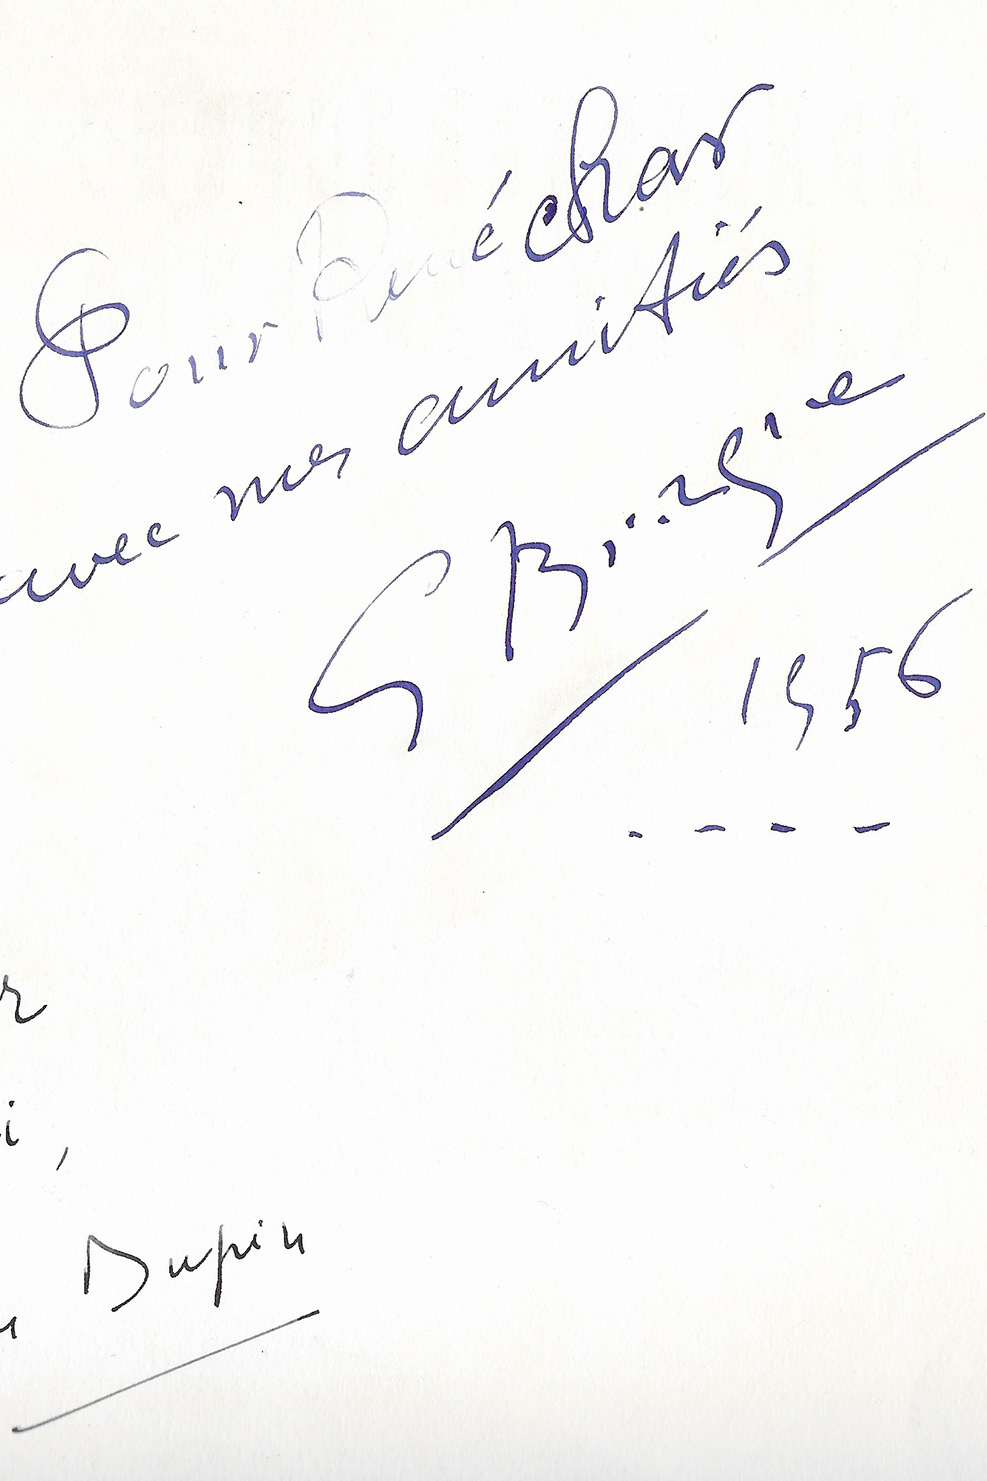 Pour René Char
avec mes amitiés
G Braque
1956
r
i,
Dupin